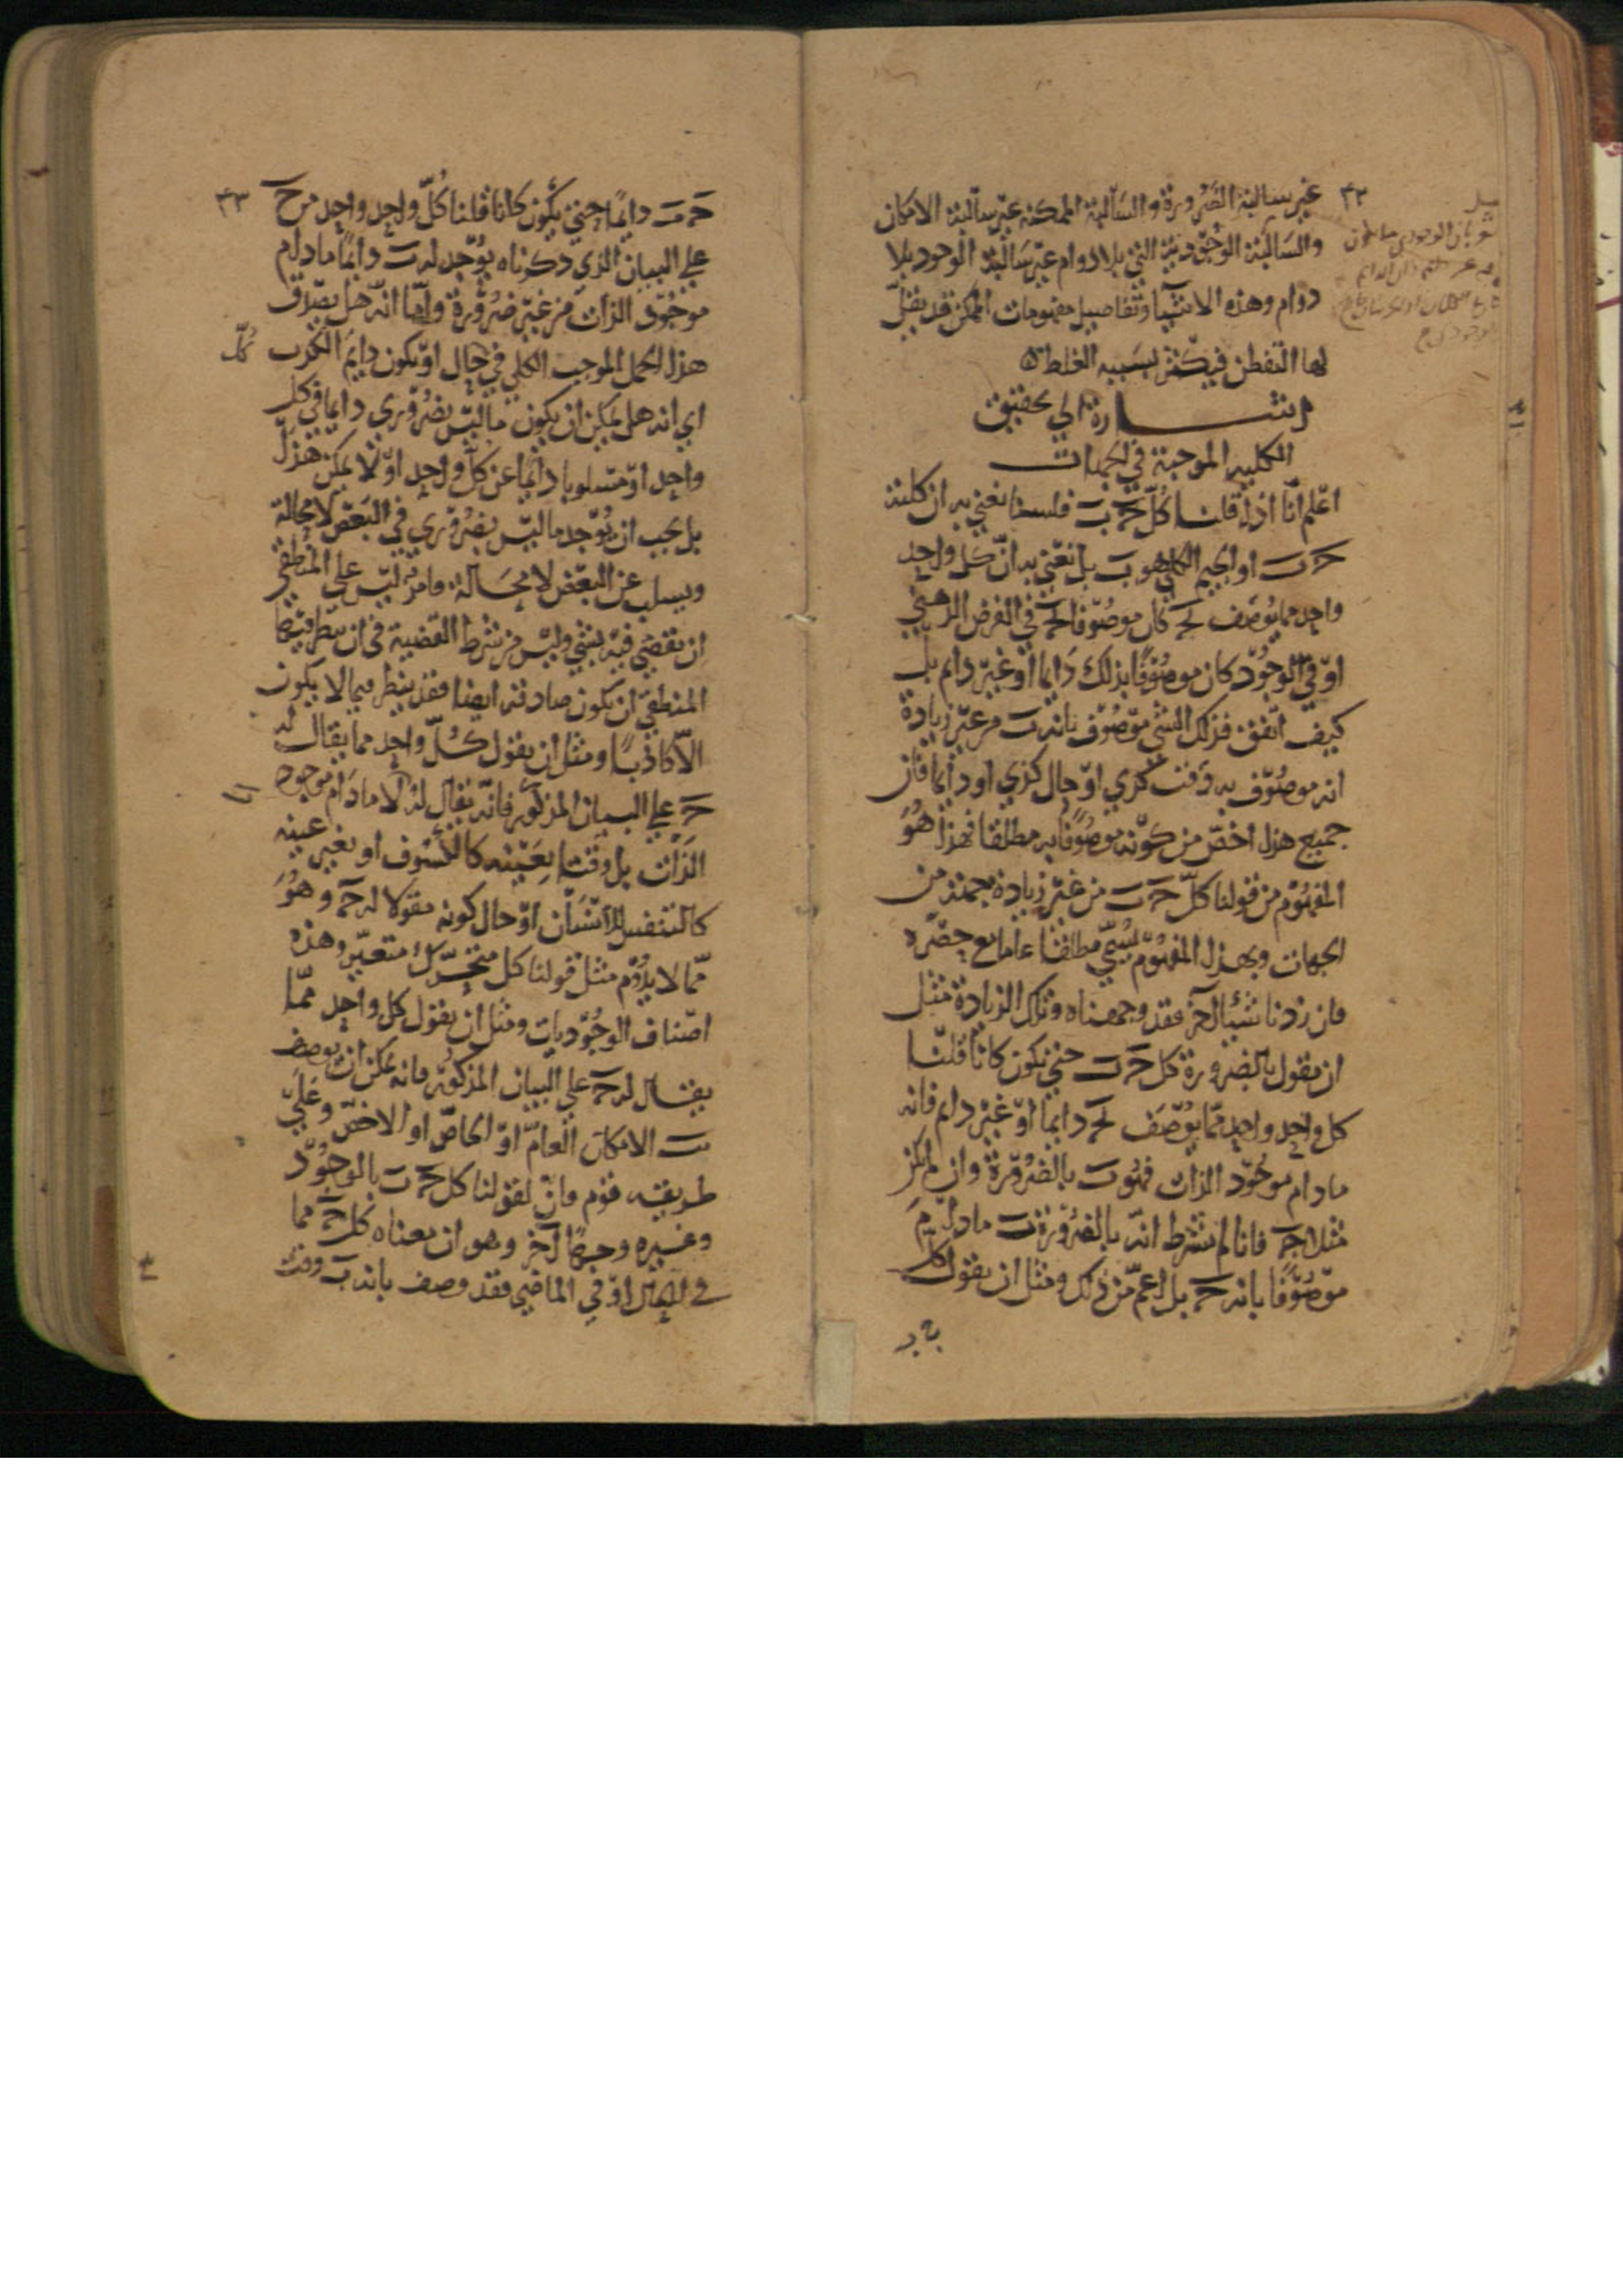 ٤٢
غير سالبة الضرورة والسالبة الممكنة غير سالبة الامكان
والسالبة الوجودية التي بلا دوام غير سالبة الوجود بلا
دوام وهذه الاشيا وتفاصيل مفهومات الممكن قد يقل
لها التفطن فيكثر بسببه الغلط
اشارة الي تحقيق
الكلية الموجبة في الجهات
اعلم انا اذا قلنا كل ج ب فلسنا نعني به ان كلية
ج ب او الجيم الكلي هو ب بل نعني به ان كل واحد
واحد مما يوصف بج كان موصوفا بج في الفرض الذهني
او في الوجود كان موصوفا بذلك دايما او غير دايم بل
كيف اتفق فذلك الشي موصوف بانه ب من غير زيادة
انه موصوف به وقت كذي او حال كذي او دايما فان
جميع هذا اخص من كونه موصوفا به مطلقا فهذا هو
المفهوم من قولنا كل ج ب من غير زيادة جهة من
الجهات وبهذا المفهوم يسمي مطلقا عاما مع حصره
فان زدنا شيا آخر فقد وجهناه وتلك الزيادة مثل
ان نقول بالضرورة كل ج ب حتي يكون كانا قلنا
كل واحد واحد مما يوصف بج دايما او غير دايم فانه
ما دام موجود الذات فهو ب بالضرورة وان لم يكن
مثلا ج فانا لم نشرط انه بالضرورة ب ما دام
موصوفا بانه ج بل اعم من ذلك ومثل ان نقول كل
٤٣
ج ب دايما حتي يكون كانا قلنا كل واحد واحد من ج
علي البيان الذي ذكرناه يوجد له ب دايما ما دام
موجود الذات من غير ضرورة واما انه هل يصدق
هذا الحمل الموجب الكلي في حال او يكون دايم الكذب
كل
اي انه هل يمكن ان يكون ما ليس بضروري دايما في كل
واحد او مسلوبا دايما عن كل واحد او لا يمكن هذا
بل يجب ان يوجد ما ليس بضروري في البعض لا محالة
ويسلب عن البعض لا محالة فامر ليس علي المنطقي
ان يقضي فيه بشي وليس من شرط القضية في ان ينظر فيها
المنطقي ان يكون صادقة ايضا فقد ينظر فيما لا يكون
الا كاذبا ومثل ان يقول كل واحد مما يقال له
ج علي البيان المذكور فانه يقال له لا ما دام موجود
الذات بل وقتا بعينه كالكسوف او بغير عينه
كالتنفس للانسان او حال كونه مقولا له ج وهو
مما لا يدوم مثل قولنا كل متحرك متغير وهذه
اصناف الوجوديات ومثل ان يقول كل واحد مما
يقال له ج علي البيان المذكور فانه يمكن ان يوصف
ب الامكان العام او الخاص او الاخص وعلي
طريقة قوم فان لقولنا كل ج ب بالوجود
وغيره وجها آخر وهو ان معناه كل ج مما
في الحال او في الماضي فقد وصف بانه ب وقت